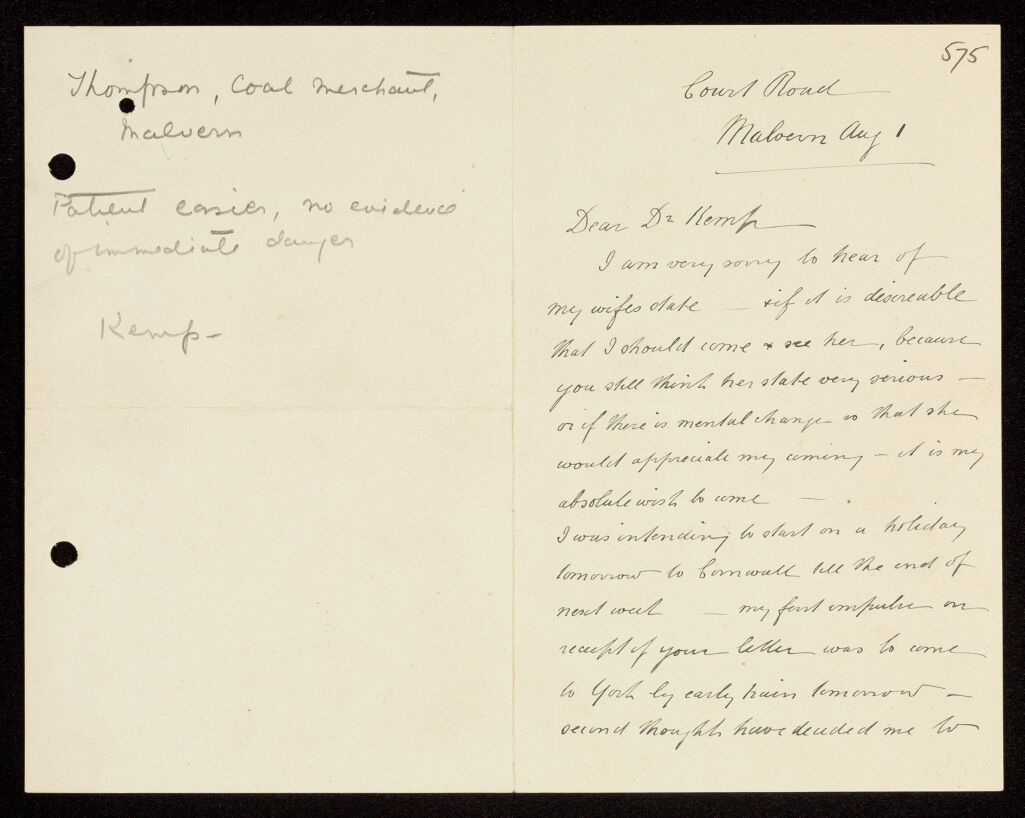 Thompson, Coal Merchant,
Malvern
Patient easier, no evidence
of immediate danger
Kemp -
575
Court Road
Malvern Aug 1
Dear Dr Kemp
I am very sorry to hear of
my wifes state — & if it is desireable
that I should come & see her, because
you still think her state very serious —
or if there is mental change so that she
would appreciate my coming — it is my
absolute wish to come —
I was intending to start on a holiday
tomorrow to Cornwall till the end of
next week — my first impulse on
receipt of your letter was to come
to York by early train tomorrow —
second thoughts have decided me to